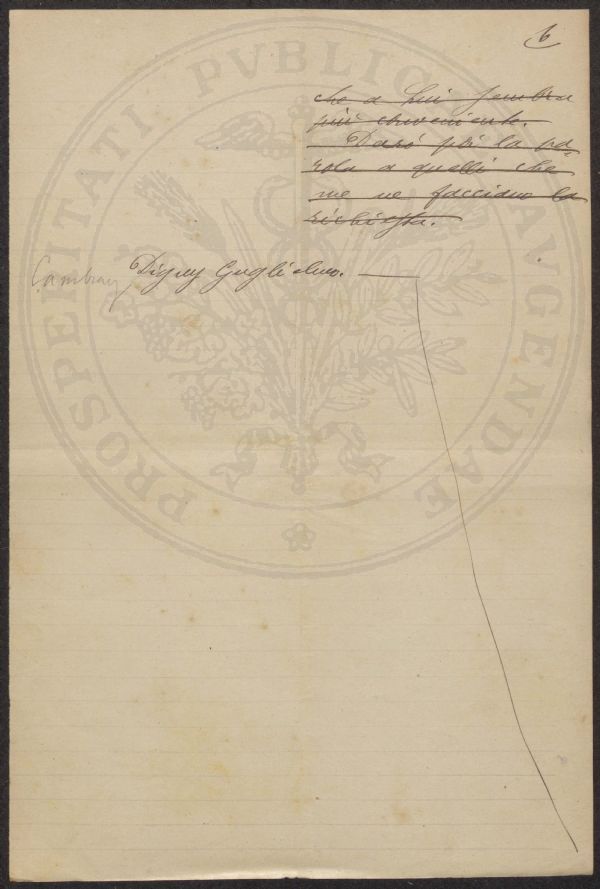 6
che a Lui sembra
più conveniente.
Darò poi la pa-
rola a quelli che
me ne facciano la
richiesta.
Cambray Digny Guglielmo.
PROSPERITATI PVBLICAE AVGENDAE